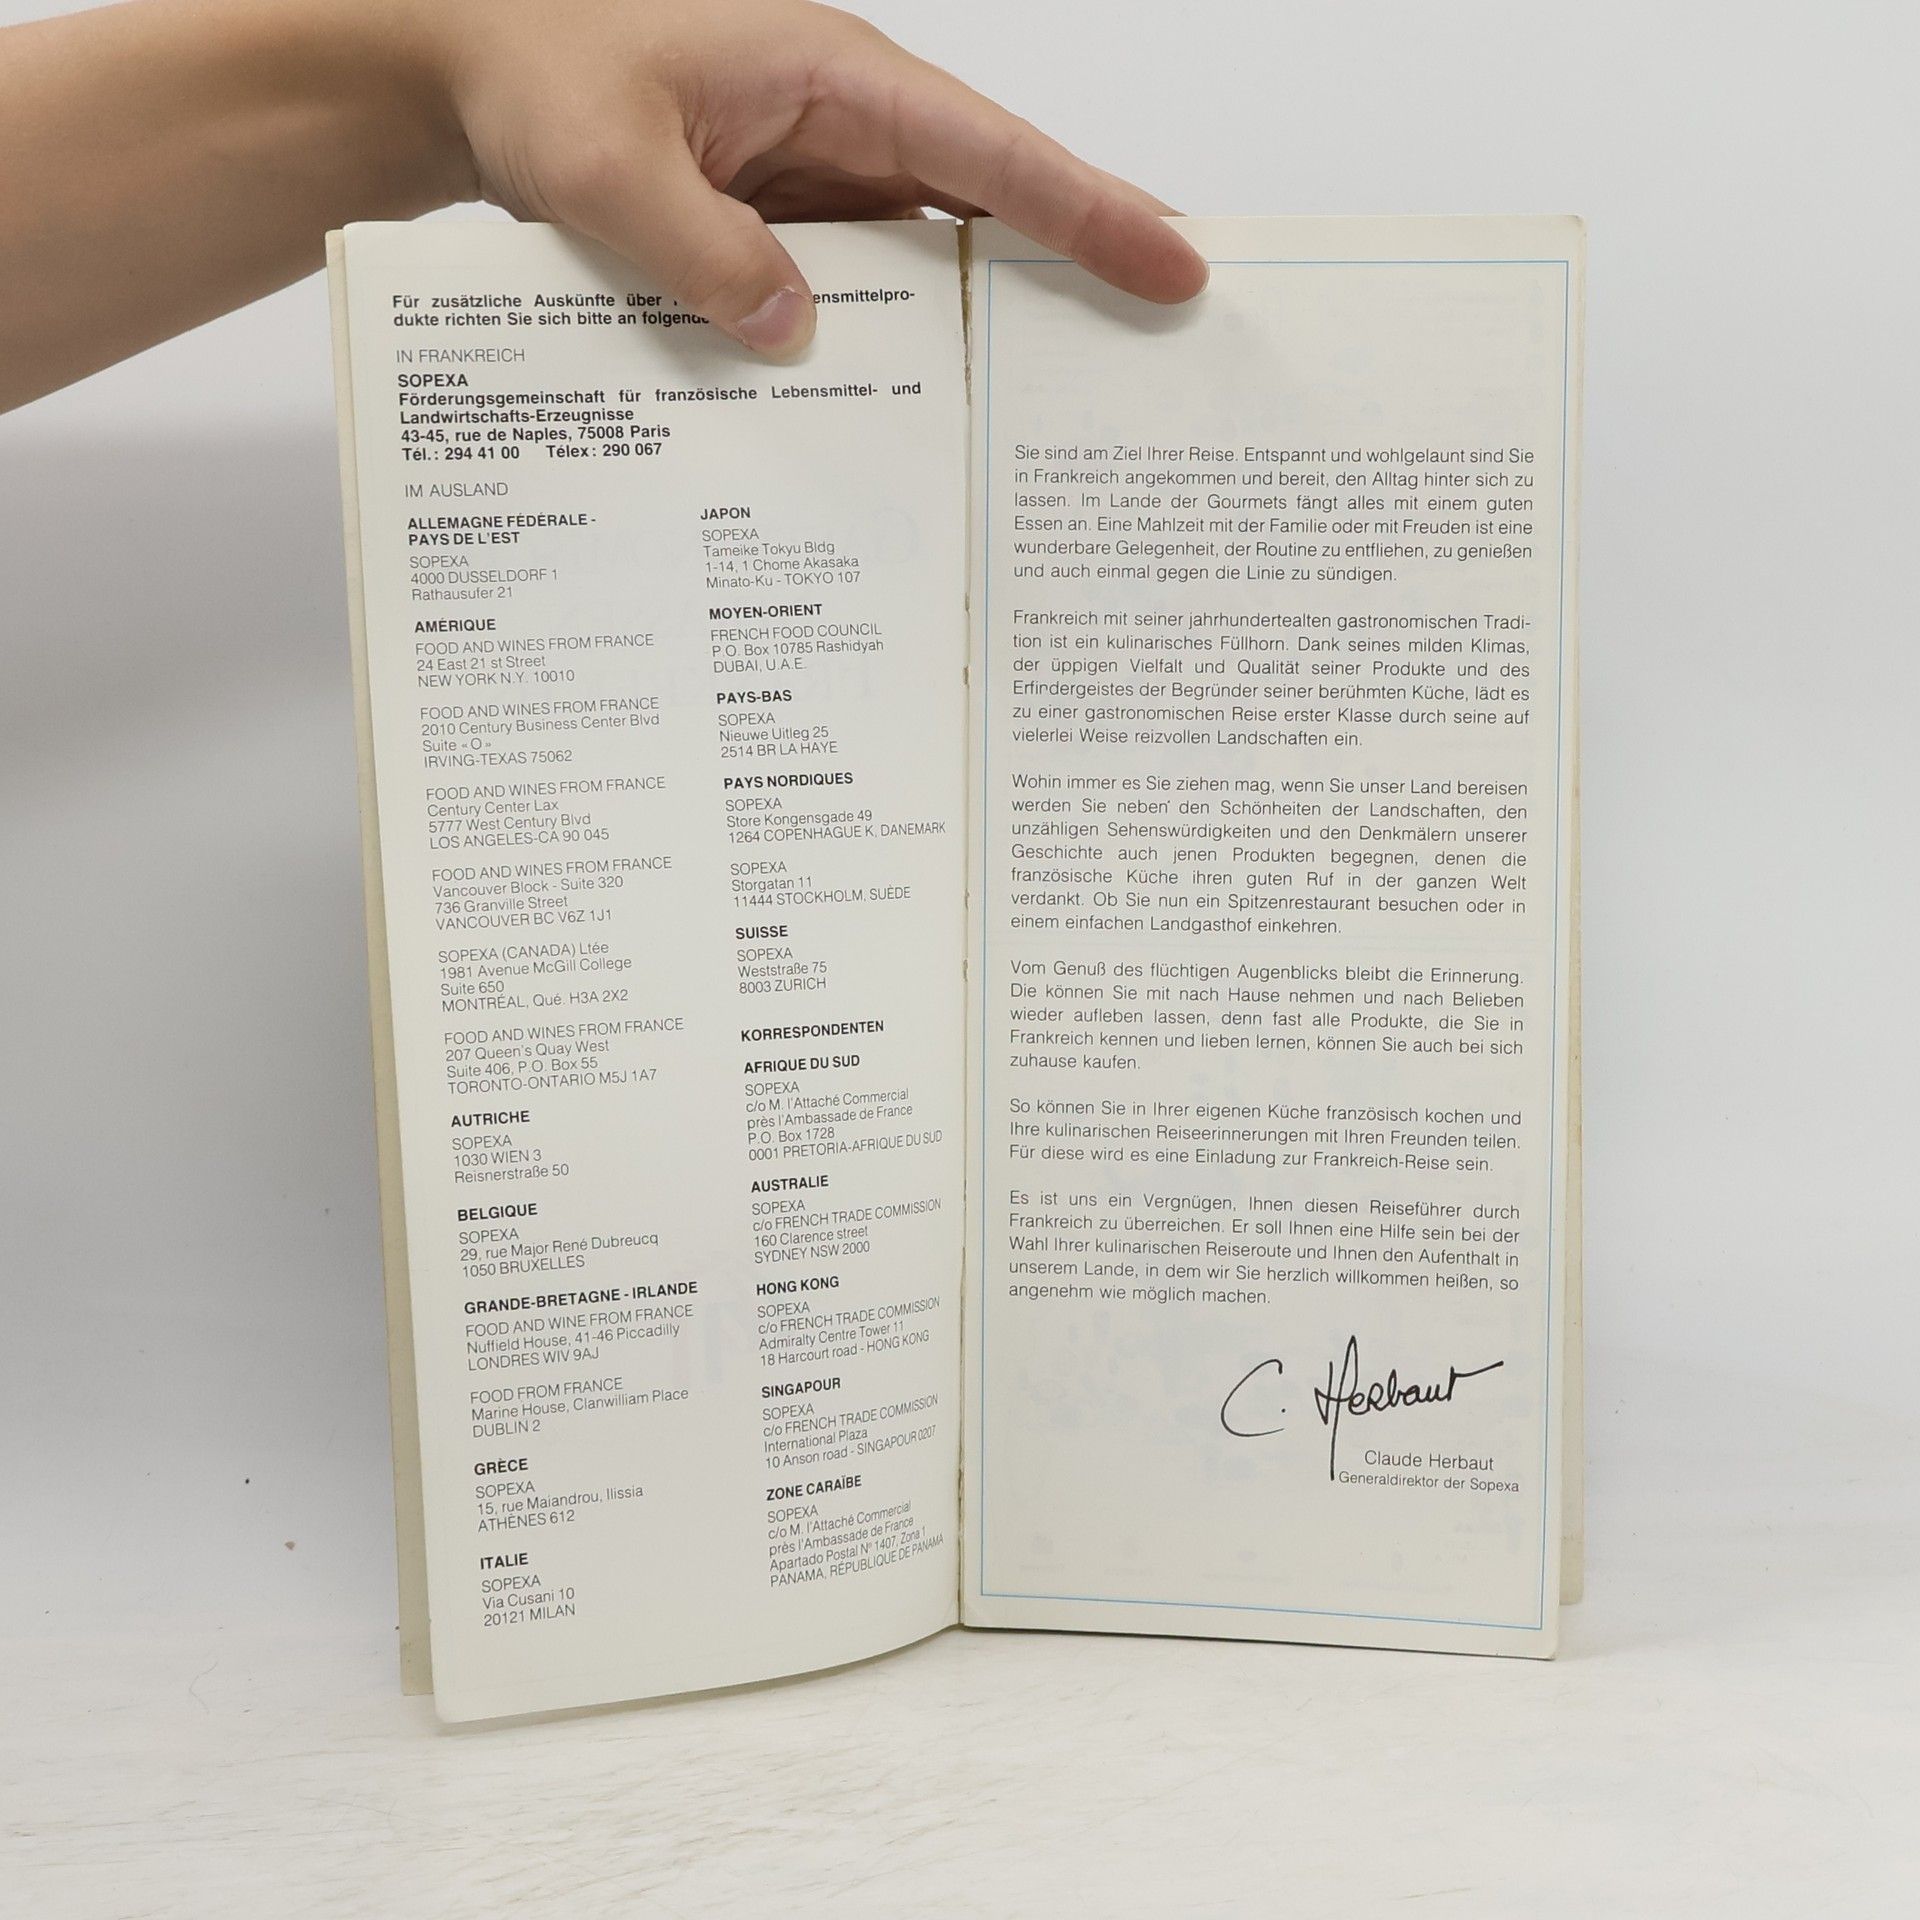 Für zusätzliche Auskünfte über ensmittelpro-
dukte richten Sie sich bitte an
IN FRANKREICH
SOPEXA
Förderungsgemeinschaft für französische Lebensmittel- und
Landwirtschafts-Erzeugnisse
43-45, rue de Naples, 75008 Paris
Tél.: 294 41 00 Télex: 290 067
IM AUSLAND
ALLEMAGNE FÉDÉRALE -
PAYS DE L'EST
SOPEXA
4000 DUSSELDORF 1
Rathausufer 21
AMÉRIQUE
FOOD AND WINES FROM FRANCE
24 East 21 st Street
NEW YORK N.Y. 10010
FOOD AND WINES FROM FRANCE
2010 Century Business Center Blvd
Suite «O»
IRVING-TEXAS 75062
FOOD AND WINES FROM FRANCE
Century Center Lax
5777 West Century Blvd
LOS ANGELES-CA 90 045
FOOD AND WINES FROM FRANCE
Vancouver Block - Suite 320
736 Granville Street
VANCOUVER BC V6Z 1J1
SOPEXA (CANADA) Ltée
1981 Avenue McGill College
Suite 650
MONTRÉAL, Qué. H3A 2X2
FOOD AND WINES FROM FRANCE
207 Queen's Quay West
Suite 406, P.O. Box 55
TORONTO-ONTARIO M5J 1A7
AUTRICHE
SOPEXA
1030 WIEN 3
Reisnerstraße 50
BELGIQUE
SOPEXA
29, rue Major René Dubreucq
1050 BRUXELLES
GRANDE-BRETAGNE - IRLANDE
FOOD AND WINE FROM FRANCE
Nuffield House, 41-46 Piccadilly
LONDRES WIV 9AJ
FOOD FROM FRANCE
Marine House, Clanwilliam Place
DUBLIN 2
GRÈCE
SOPEXA
15, rue Maiandrou, Ilissia
ATHÈNES 612
ITALIE
SOPEXA
Via Cusani 10
20121 MILAN
JAPON
SOPEXA
Tameike Tokyu Bldg
1-14, 1 Chome Akasaka
Minato-Ku - TOKYO 107
MOYEN-ORIENT
FRENCH FOOD COUNCIL
P.O. Box 10785 Rashidyah
DUBAI, U.A.E.
PAYS-BAS
SOPEXA
Nieuwe Uitleg 25
2514 BR LA HAYE
PAYS NORDIQUES
SOPEXA
Store Kongensgade 49
1264 COPENHAGUE K, DANEMARK
SOPEXA
Storgatan 11
11444 STOCKHOLM, SUÈDE
SUISSE
SOPEXA
Weststraße 75
8003 ZURICH
KORRESPONDENTEN
AFRIQUE DU SUD
SOPEXA
c/o M. l'Attaché Commercial
près l'Ambassade de France
P.O. Box 1728
0001 PRETORIA-AFRIQUE DU SUD
AUSTRALIE
SOPEXA
c/o FRENCH TRADE COMMISSION
160 Clarence street
SYDNEY NSW 2000
HONG KONG
SOPEXA
c/o FRENCH TRADE COMMISSION
Admiralty Centre Tower 11
18 Harcourt road - HONG KONG
SINGAPOUR
SOPEXA
c/o FRENCH TRADE COMMISSION
International Plaza
10 Anson road - SINGAPOUR 0207
ZONE CARAÏBE
SOPEXA
c/o M. l'Attaché Commercial
près l'Ambassade de France
Apartado Postal N° 1407, Zona 1
PANAMA, RÉPUBLIQUE DE PANAMA
Sie sind am Ziel Ihrer Reise. Entspannt und wohlgelaunt sind Sie
in Frankreich angekommen und bereit, den Alltag hinter sich zu
lassen. Im Lande der Gourmets fängt alles mit einem guten
Essen an. Eine Mahlzeit mit der Familie oder mit Freuden ist eine
wunderbare Gelegenheit, der Routine zu entfliehen, zu genießen
und auch einmal gegen die Linie zu sündigen.
Frankreich mit seiner jahrhundertealten gastronomischen Tradi-
tion ist ein kulinarisches Füllhorn. Dank seines milden Klimas,
der üppigen Vielfalt und Qualität seiner Produkte und des
Erfindergeistes der Begründer seiner berühmten Küche, lädt es
zu einer gastronomischen Reise erster Klasse durch seine auf
vielerlei Weise reizvollen Landschaften ein.
Wohin immer es Sie ziehen mag, wenn Sie unser Land bereisen
werden Sie neben den Schönheiten der Landschaften, den
unzähligen Sehenswürdigkeiten und den Denkmälern unserer
Geschichte auch jenen Produkten begegnen, denen die
französische Küche ihren guten Ruf in der ganzen Welt
verdankt. Ob Sie nun ein Spitzenrestaurant besuchen oder in
einem einfachen Landgasthof einkehren.
Vom Genuß des flüchtigen Augenblicks bleibt die Erinnerung.
Die können Sie mit nach Hause nehmen und nach Belieben
wieder aufleben lassen, denn fast alle Produkte, die Sie in
Frankreich kennen und lieben lernen, können Sie auch bei sich
zuhause kaufen.
So können Sie in Ihrer eigenen Küche französisch kochen und
Ihre kulinarischen Reiseerinnerungen mit Ihren Freunden teilen.
Für diese wird es eine Einladung zur Frankreich-Reise sein.
Es ist uns ein Vergnügen, Ihnen diesen Reiseführer durch
Frankreich zu überreichen. Er soll Ihnen eine Hilfe sein bei der
Wahl Ihrer kulinarischen Reiseroute und Ihnen den Aufenthalt in
unserem Lande, in dem wir Sie herzlich willkommen heißen, so
angenehm wie möglich machen.
C. Herbaut
Claude Herbaut
Generaldirektor der Sopexa